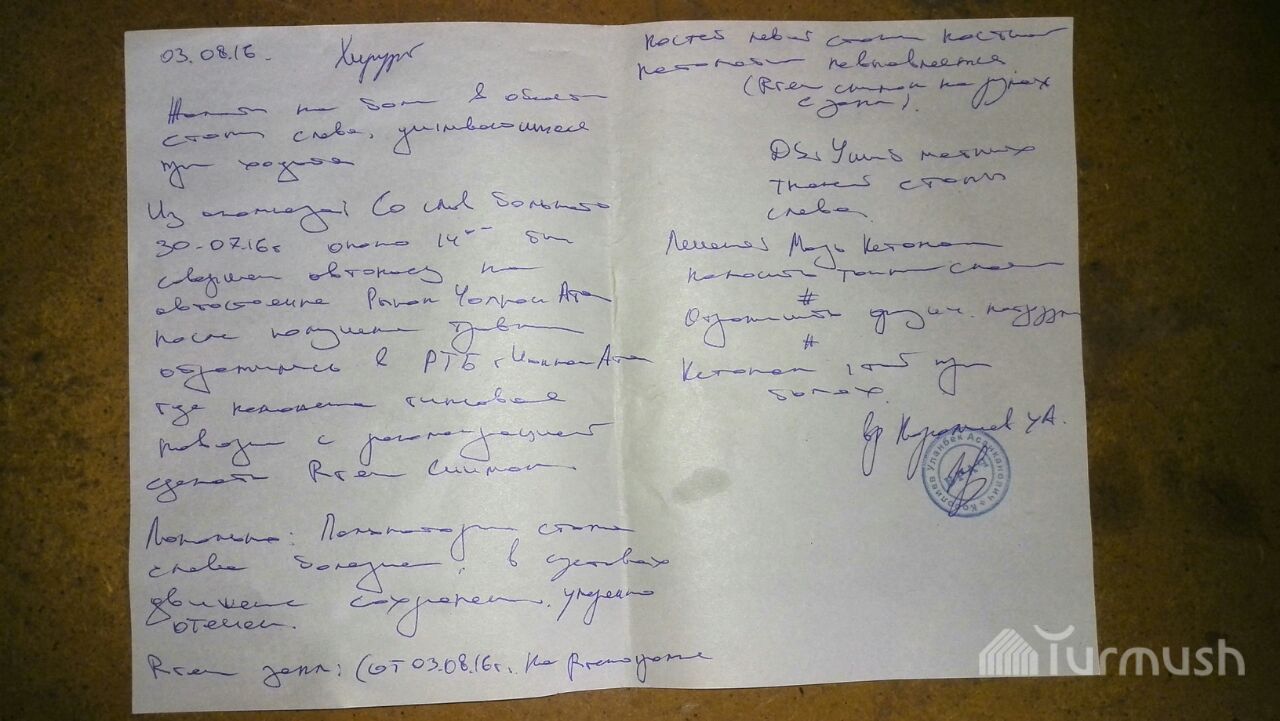 03.08.16. Хирург
Жалобы на боли в области
стопы слева, усиливающиеся
при ходьбе
Из анамнеза: Со слов больного
30-07.16г около 14⁰⁰ был
совершен автонаезд на
автостоянке Рынок Чолпон Ата
после получения травмы
обратились в РТБ г. Чолпон Ата
где наложена гипсовая
повязка с рекомендацией
сделать Rген снимок.
Локально: Пальпаторно стопа
слева болезнен, в суставах
движение сохранены, умеренно
отечен.
Rген закл: (от 03.08.16г. На Rтенограмме
костей левой стопы костной
патологии не выявляется
(Rген снимок на руках
с закл).
DS: Ушиб мягких
тканей стопы
слева.
Лечение Мазь Кетонал
наносить тонким слоем
#
Ограничить физич. нагрузки
#
Кетонал 1таб при
болях.
вр Коропиев УА.
Уланбек Асанканович
Turmush